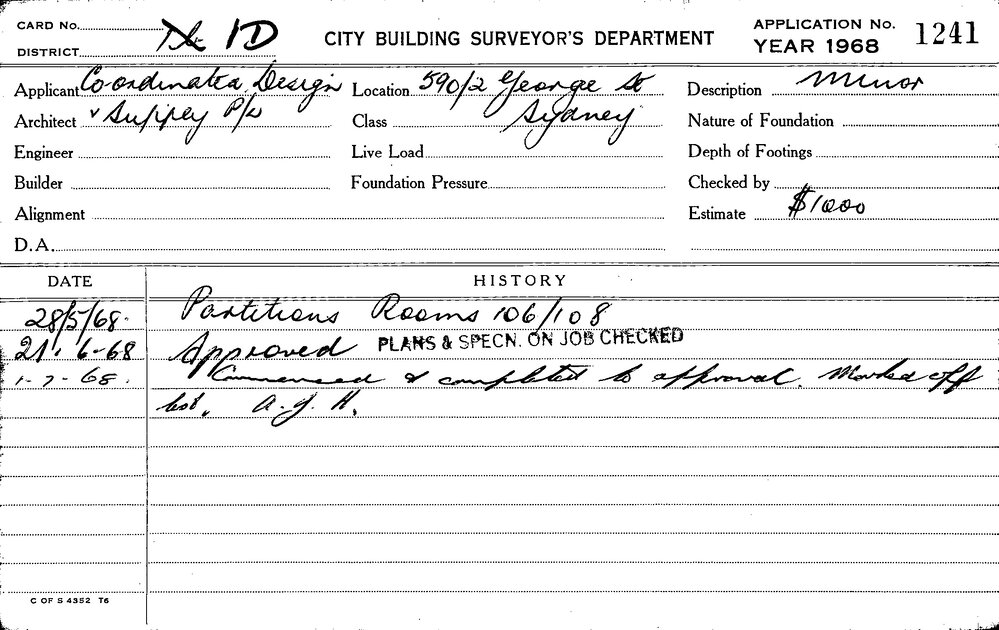 CARD No.
DISTRICT 1D
CITY BUILDING SURVEYOR'S DEPARTMENT
APPLICATION No. 1241
YEAR 1968
Applicant Co-ordinated Design
Location 590/2 George St
Description Minor
Architect & Supply P/L
Class Sydney
Nature of Foundation
Engineer
Live Load
Depth of Footings
Builder
Foundation Pressure
Checked by
Alignment
Estimate $1000
D.A.
DATE HISTORY
28/5/68. Partitions Rooms 106/108
21.6-68 Approved PLANS & SPECN. ON JOB CHECKED
1-7-68. Commenced & completed to approval. Marked off
list. A.J.H.
C OF S 4352 T6